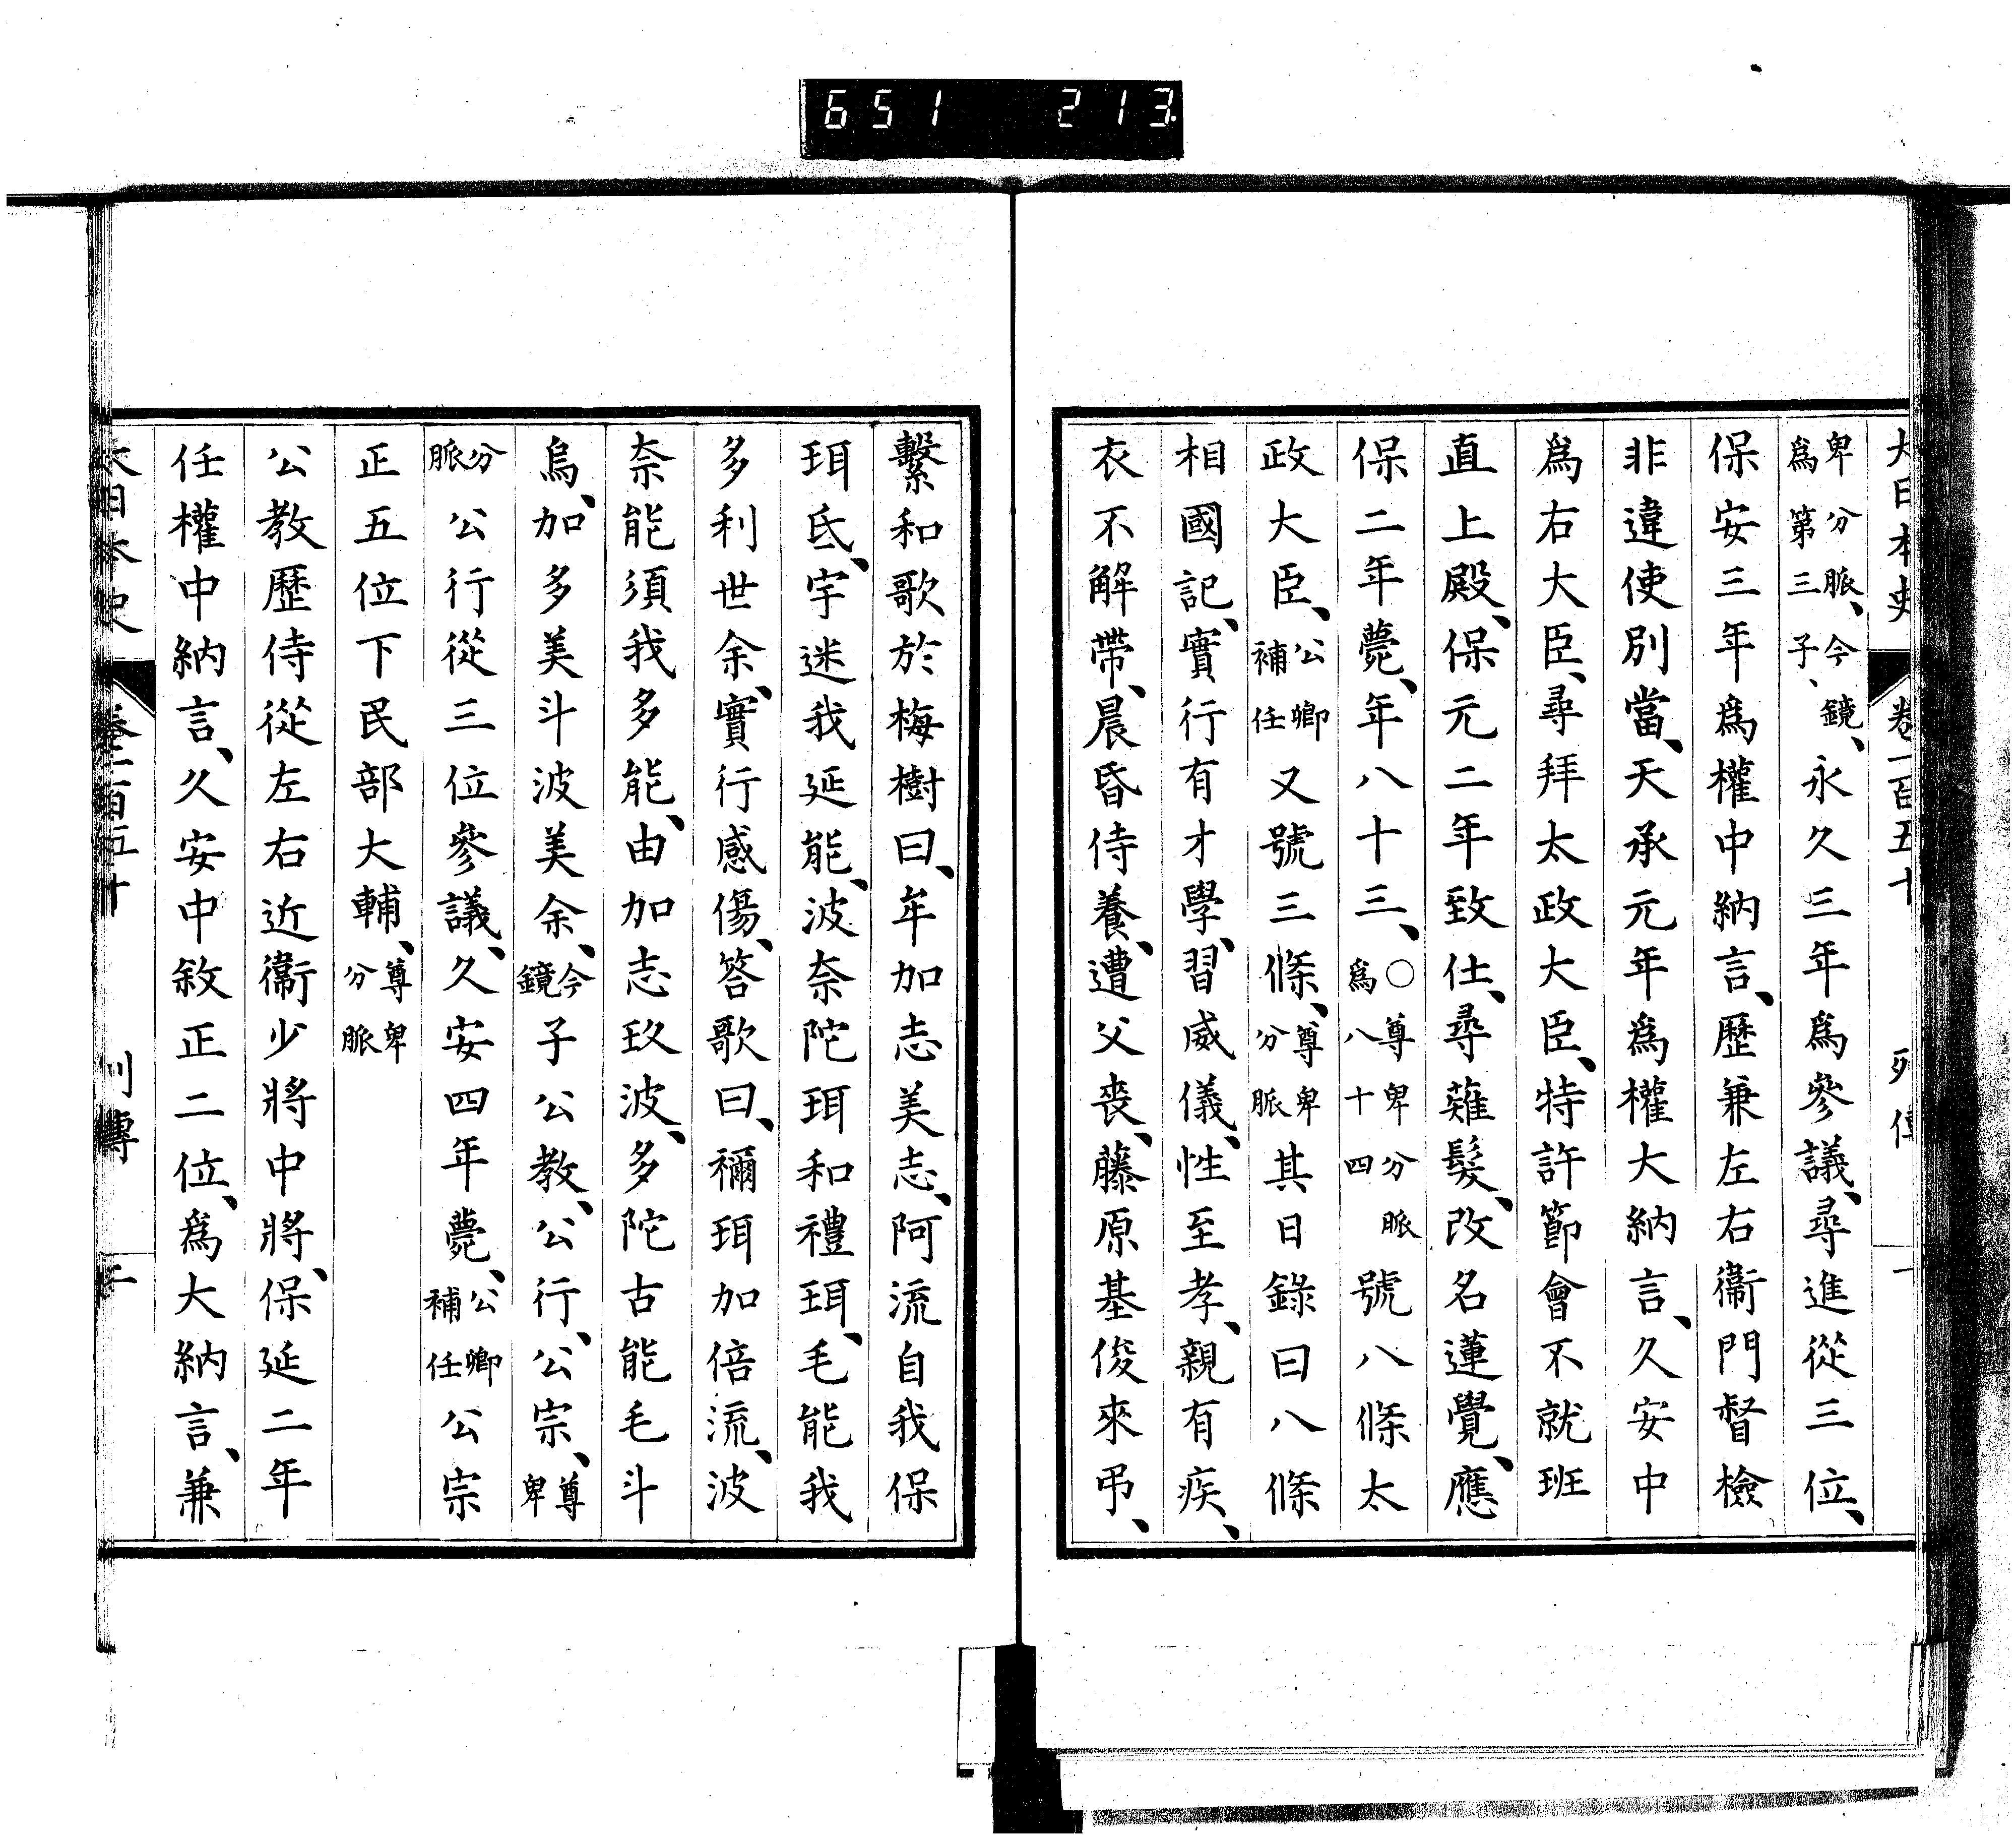 651 213
大日本史 卷一百五十 列傳 一
卑分脈、今鏡、爲第三子、永久三年爲參議、尋進從三位、
保安三年爲權中納言、歷兼左右衞門督檢
非違使別當、天承元年爲權大納言、久安中
爲右大臣、尋拜太政大臣、特許節會不就班
直上殿、保元二年致仕、尋薙髮、改名蓮覺、應
保二年薨、年八十三、○尊卑分脈爲八十四號八條太
政大臣、公卿補任又號三條、尊卑分脈其日錄曰八條
相國記、實行有才學、習威儀、性至孝、親有疾、
衣不解帶、晨昏侍養、遭父喪、藤原基俊來弔、
繫和歌於梅樹曰、年加志美志、阿流自我保
珥氐、宇迷我延能、波奈陀珥和禮珥、毛能我
多利世余、實行感傷、答歌曰、禰珥加倍流、波
奈能須我多能、由加志玖波、多陀古能毛斗
烏、加多美斗波美余、今鏡子公教、公行、公宗、尊卑
分脈公行從三位參議、久安四年薨、公卿補任公宗
正五位下民部大輔、尊卑分脈
公教歷侍從左右近衞少將中將、保延二年
任權中納言、久安中敘正二位、爲大納言、兼
大日本史 卷一百五十 列傳 二